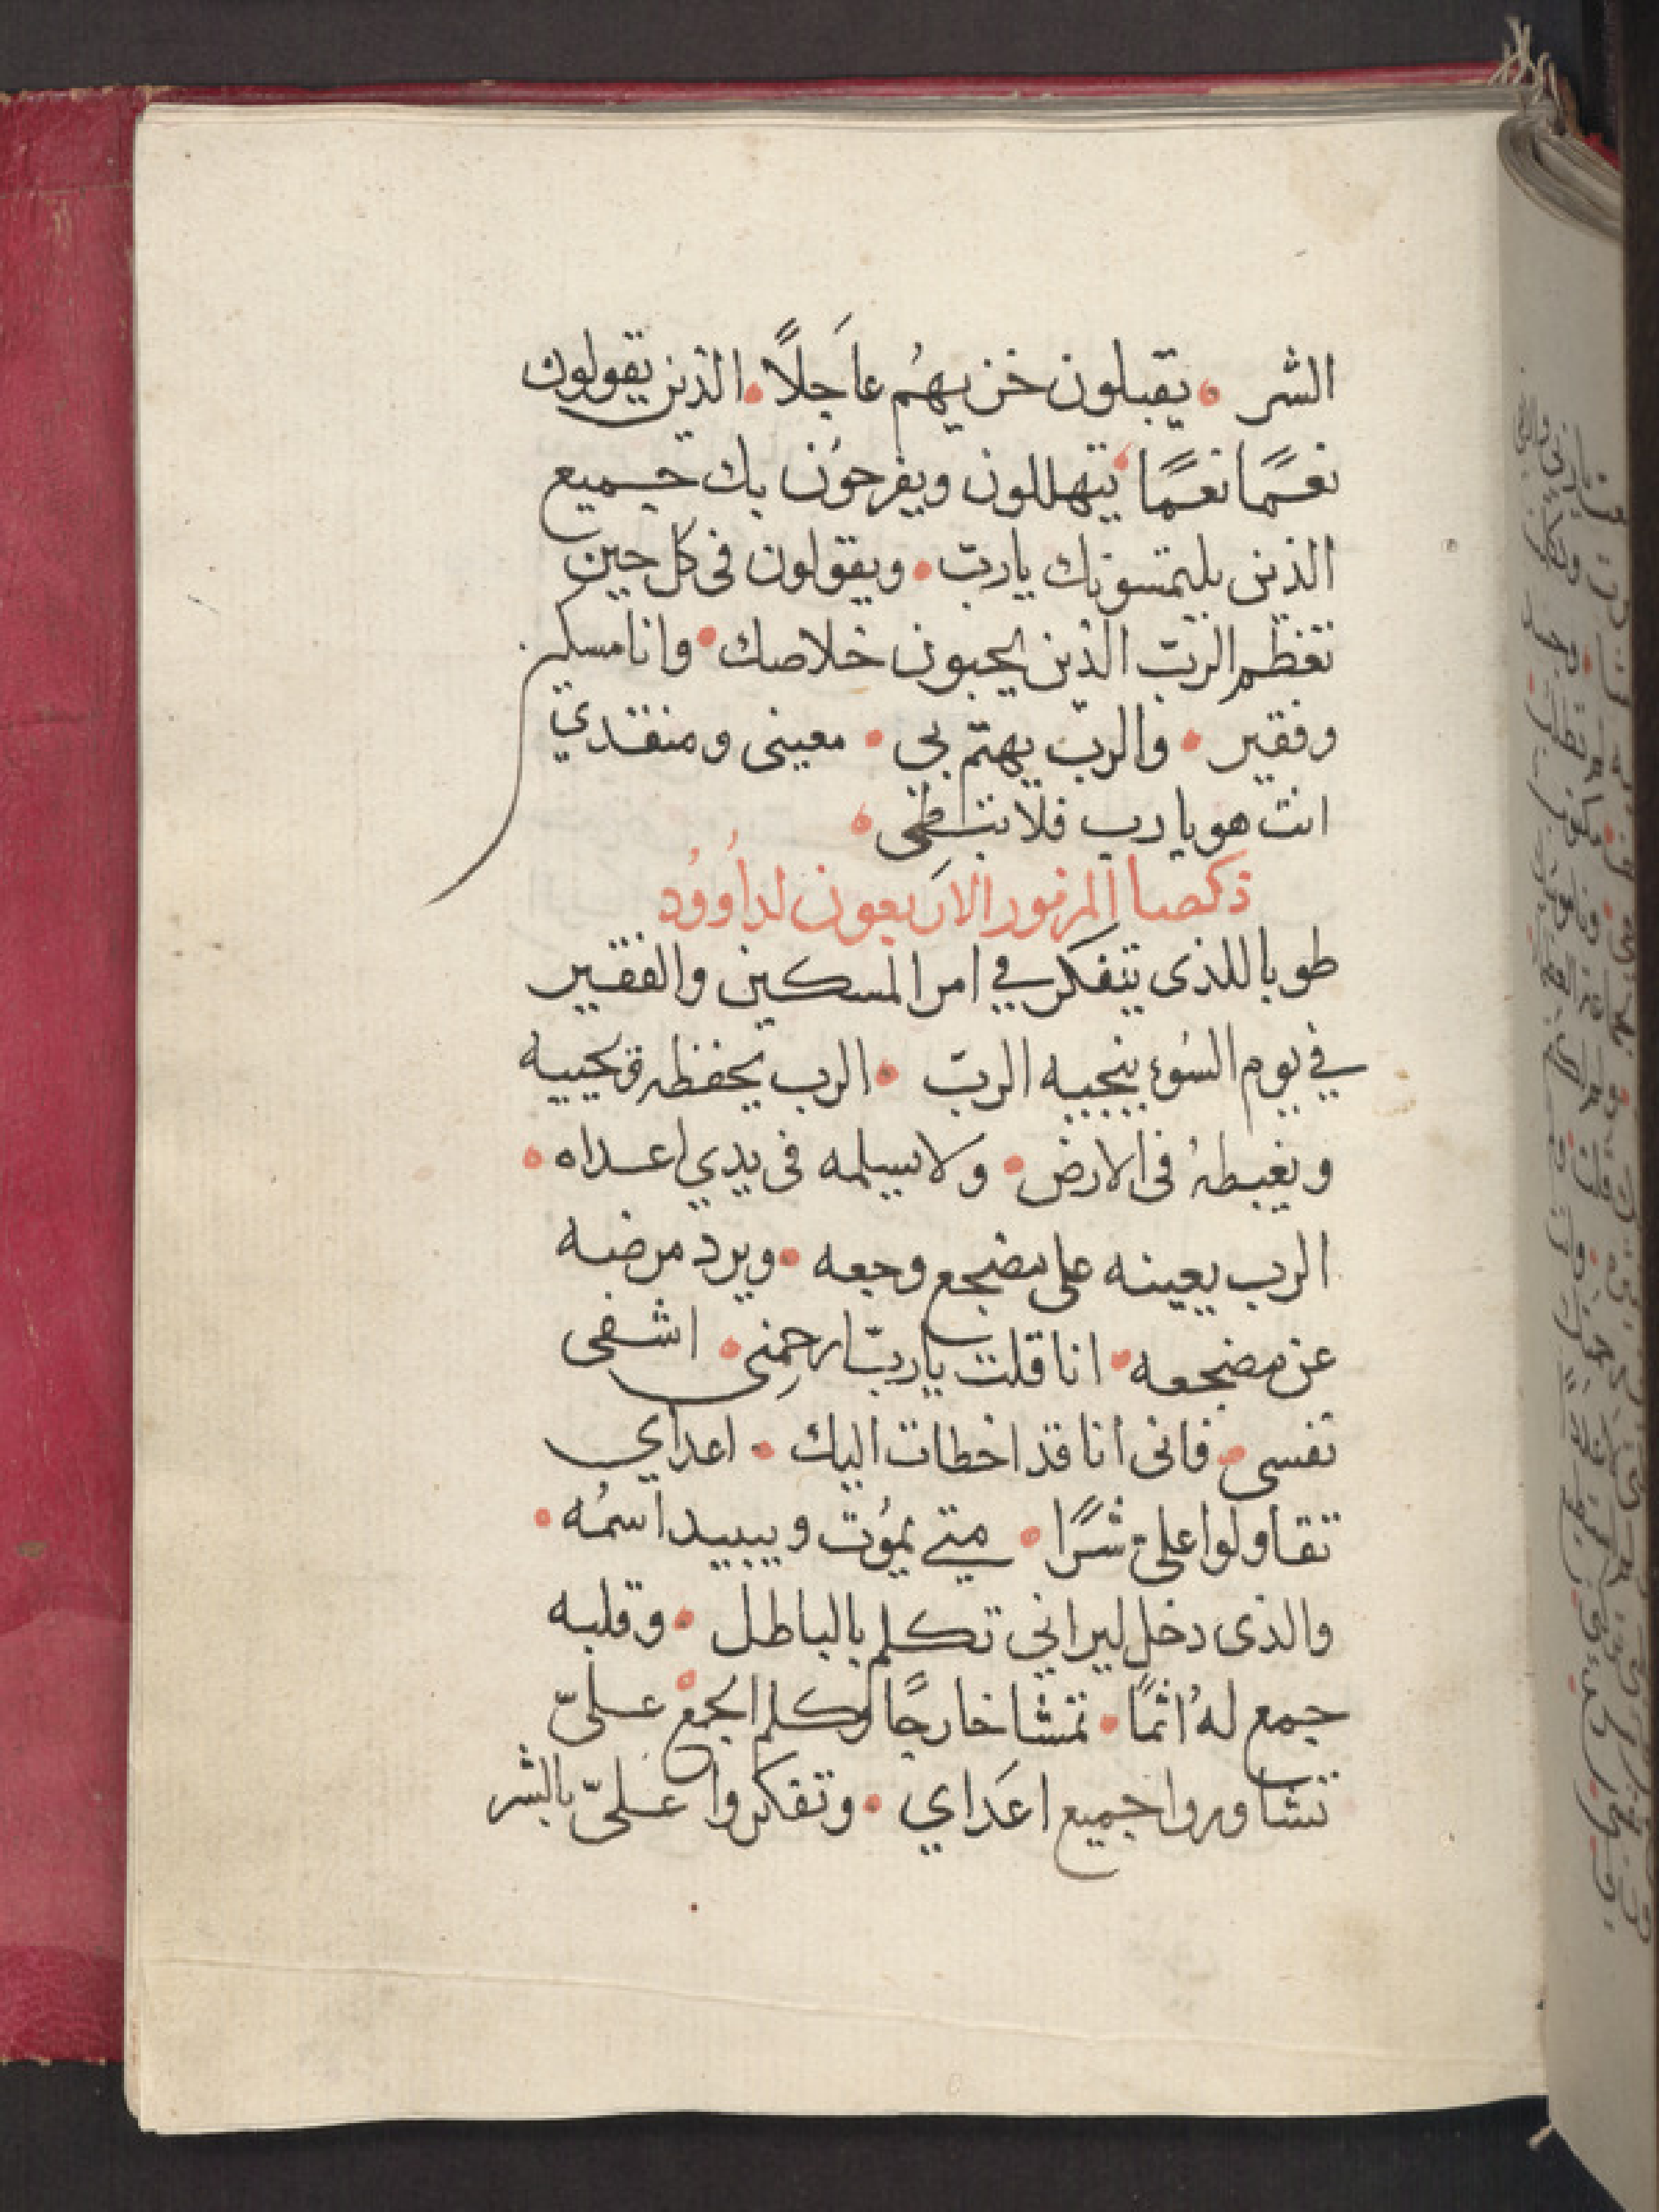 الشر • يقبلون خزيهُم عاَجلاً • الذين يقولون
نعمًا نعمًا • يتهللون ويفرحوُن بك جميع
الذين يلتمسونك يارب • ويقولون فى كل حين
تعظم الرب الذين يحبون خلاصك • وانا مسكين
وفقير • والربّ يهتم بى • معينى ومنقدي
انت هو يا رب فلا تبـطى •
ذكصا المزمور الاربعون لداُووُد
طوبا للذى يتفكر في امر المسكين والفقير
في يوم السُوء ينجيه الربّ • الرب يحفظه ويحييه
ويغبطهُ فى الارض • ولا يسلمه فى يدي اعداه •
الرب يعينه على مضجع وجعه • ويرد مرضه
عن مضجعه • انا قلت ياربّ ارحمِنى • اشفى
نفسى • فانى انا قد اخطات اليك • اعداي
تقاولوا علىّ شرًا • متى يموُت ويبيد اسمُه •
والذى دخل ليرانى تكلم بالباطل • وقلبه
جمع لهُ اثمًا • تمشا خارجًا وكلم الجمع • علىّ
تشاوروا جميع اعَداي • وتفكروا علىّ بالشر